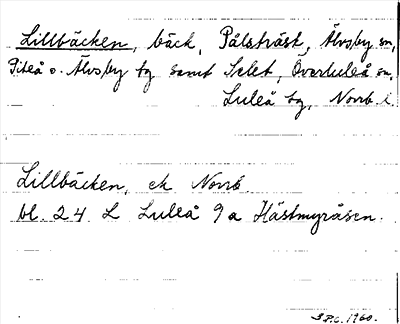 Lillbäcken, bäck, Pålsträsk, Älvsby sn,
Piteå o. Älvsby tg samt Selet, Överluleå sn,
Luleå tg, Norrb. l.
Lillbäcken, ek Norrb.
bl. 24 L Luleå 9a Hästmyråsen.
1960.